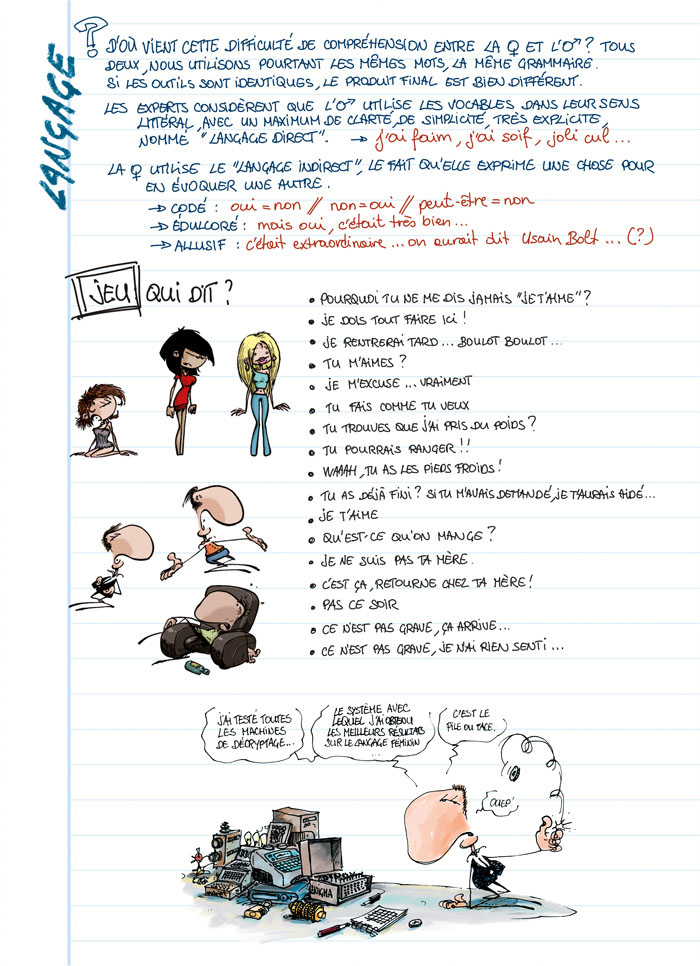 LANGAGE
?
D'OÙ VIENT CETTE DIFFICULTÉ DE COMPRÉHENSION ENTRE LA ♀ ET L'♂ ? TOUS
DEUX, NOUS UTILISONS POURTANT LES MÊMES MOTS, LA MÊME GRAMMAIRE.
SI LES OUTILS SONT IDENTIQUES, LE PRODUIT FINAL EST BIEN DIFFÉRENT.
LES EXPERTS CONSIDÈRENT QUE L'♂ UTILISE LES VOCABLES DANS LEUR SENS
LITTÉRAL, AVEC UN MAXIMUM DE CLARTÉ, DE SIMPLICITÉ, TRÈS EXPLICITE,
NOMMÉ "LANGAGE DIRECT". → j'ai faim, j'ai soif, joli cul...
LA ♀ UTILISE LE "LANGAGE INDIRECT", LE FAIT QU'ELLE EXPRIME UNE CHOSE POUR
EN ÉVOQUER UNE AUTRE.
→ CODÉ : oui = non // non = oui // peut-être = non
→ ÉDULCORÉ : mais oui, c'était très bien...
→ ALLUSIF : c'était extraordinaire... on aurait dit Usain Bolt... (?)
JEU QUI DIT ?
• POURQUOI TU NE ME DIS JAMAIS "JE T'AIME" ?
• JE DOIS TOUT FAIRE ICI !
• JE RENTRERAI TARD... BOULOT BOULOT...
• TU M'AIMES ?
• JE M'EXCUSE... VRAIMENT
• TU FAIS COMME TU VEUX
• TU TROUVES QUE J'AI PRIS DU POIDS ?
• TU POURRAIS RANGER !!
• WAAAH, TU AS LES PIEDS FROIDS !
• TU AS DÉJÀ FINI ? SI TU M'AVAIS DEMANDÉ, JE T'AURAIS AIDÉ...
• JE T'AIME
• QU'EST-CE QU'ON MANGE ?
• JE NE SUIS PAS TA MÈRE.
• C'EST ÇA, RETOURNE CHEZ TA MÈRE !
• PAS CE SOIR
• CE N'EST PAS GRAVE, ÇA ARRIVE...
• CE N'EST PAS GRAVE, JE N'AI RIEN SENTI...
J'AI TESTÉ TOUTES
LES MACHINES
DE DÉCRYPTAGE...
LE SYSTÈME AVEC
LEQUEL J'AI OBTENU
LES MEILLEURS RÉSULTATS
SUR LE LANGAGE FÉMININ
...
C'EST LE
PILE OU FACE.
OUEP!
ENIGMA